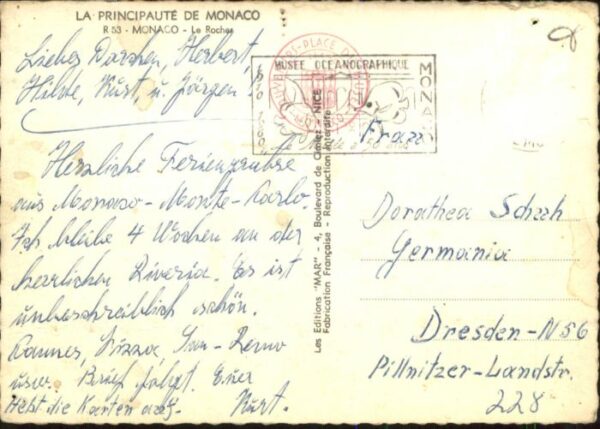 LA PRINCIPAUTÉ DE MONACO
R 53 - MONACO - Le Rocher
Liebes Dorchen, Herbert,
Hilde, Kurt, u. Jörgen!
Herzliche Feriengrüsse
aus Monaco - Monte - Karlo.
Ich bleibe 4 Wochen an der
herrlichen Riveria. Es ist
unbeschreiblich schön.
Kannes, Nizza, San - Remo
usw. Brief folgt. Euer
Hebt die Karten auf. Kurt.
MUSÉE OCEANOGRAPHIQUE
MONACO
Les Editions "MAR" - 4, Boulevard de Cimiez - NICE
Fabrication Française - Reproduction Interdite
Frau
Dorothea Schuh
Germania
Dresden-N56
Pillnitzer-Landstr.
228